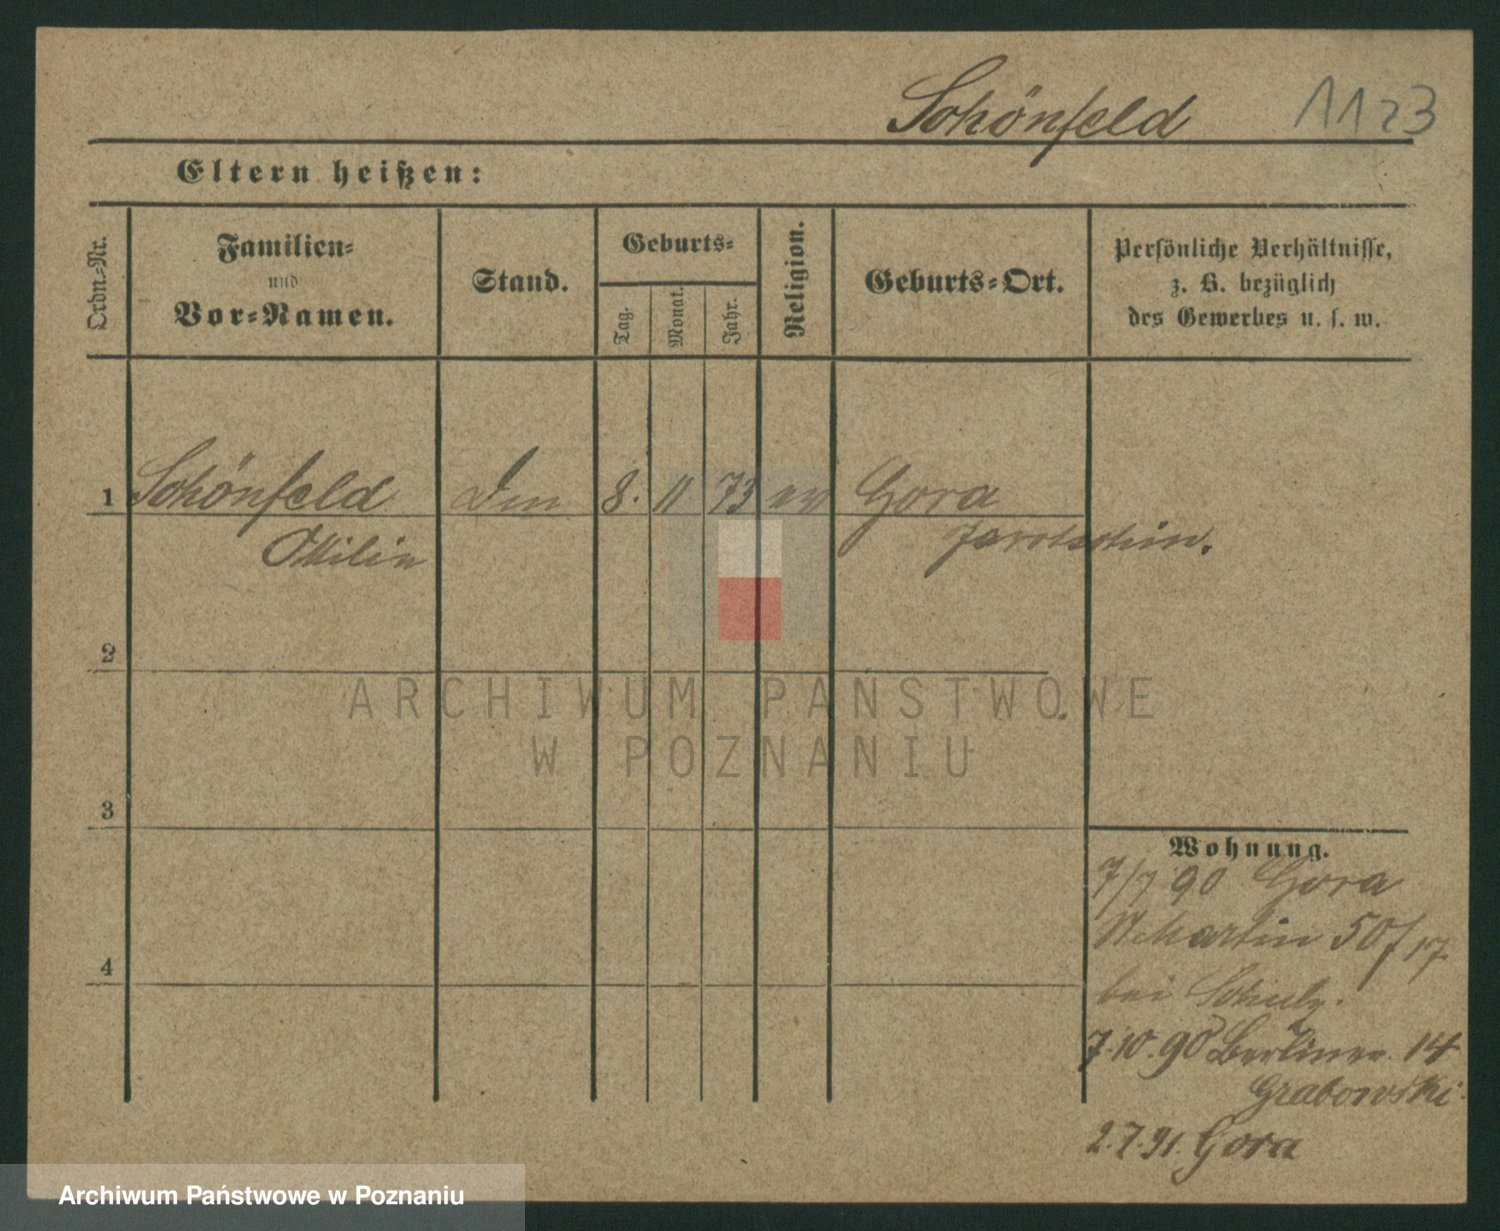 Schönfeld 1123
Eltern heißen:
Ordn.-Nr.
Familien-
und
Vor-Namen.
Stand.
Geburts-
Tag.
Monat.
Jahr.
Religion.
Geburts-Ort.
Persönliche Verhältnisse,
z. B. bezüglich
des Gewerbes u. s. w.
1 Schönfeld 8. 11. 73 ev Gora
Ottilie Jarotschin.
2
3
4
Wohnung.
7/7 90 Gora
St Martin 50 / 17.
bei Schulz.
7.10.90 Berliner. 14
Grabowski.
2.7.91. Gora
ARCHIWUM PAŃSTWOWE
W POZNANIU
Archiwum Państwowe w Poznaniu